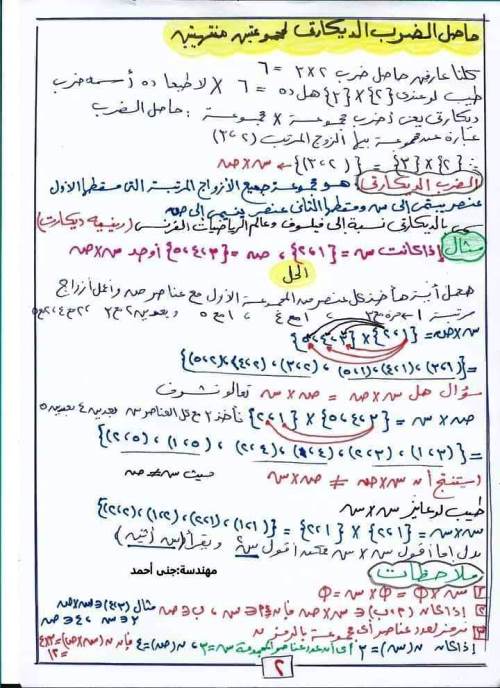 حاصل الضرب الديكارتى لمجموعتين منتهيتين
كلنا عارفين حاصل ضرب ٢×٣ = ٦
طيب لو عندى {٢}×{٣} هل ده = ٦ X لا طبعا ده أسمه ضرب
ديكارتى يعنى أضرب مجموعة × مجموعة : حاصل الضرب
عبارة عن مجموعة بها الزوج المرتب (٢،٣)
∴ {٢}×{٣} = {(٢،٣)} ← س×ص
الضرب الديكارتى : هو مجموعة جميع الأزواج المرتبة التى مسقطها الأول
عنصر ينتمى إلى س ومسقطها الثانى عنصر ينتمى إلى ص
سمى بالديكارتى نسبة إلى فيلسوف وعالم الرياضيات الفرنسى (رينيه ديكارت)
مثال إذا كانت س = {١،٢} ، ص = {٣،٤،٥} أوجد س×ص
الحل
كل عنصر من المجموعة الأولى مع عناصر ص وأعمل أزواج
مرتبة
س×ص = {١،٢} × {٣،٤،٥}
= {(١،٣)،(١،٤)،(١،٥)،(٢،٣)،(٢،٤)،(٢،٥)}
سؤال هل س×ص = ص×س تعالو نشوف
ص×س = {٣،٤،٥} × {١،٢} نأخذ ٣ مع كل العناصر س وبعدين ٤ بعدين ٥
= {(٣،١)،(٣،٢)،(٤،١)،(٤،٢)،(٥،١)،(٥،٢)}
نستنتج أن س×ص ≠ ص×س حيث س ≠ ص
طيب لو عايز س×س
س×س = {١،٢} × {١،٢} = {(١،١)،(١،٢)،(٢،١)،(٢،٢)}
بدل ما أقول س×س ممكن أقول س٢ ويقرأ (س أتنين)
مهندسة:جنى أحمد
ملاحظات
١ س×Φ = Φ×س = Φ
٢ إذا كان (٢،ب) ∈ س×ص فإن ٢∈س ، ب∈ص مثال (٣،٤)∈س×ص
٣∈س ، ٤∈ص
٣ نرمز لعدد عناصر أى مجموعة بالرمز ن
إذا كان ن(س) = ٣ أى أن عدد عناصر المجموعة س=٣ ، ن(ص)=٤ فإن ن(س×ص)=٣×٤
=١٢
٢